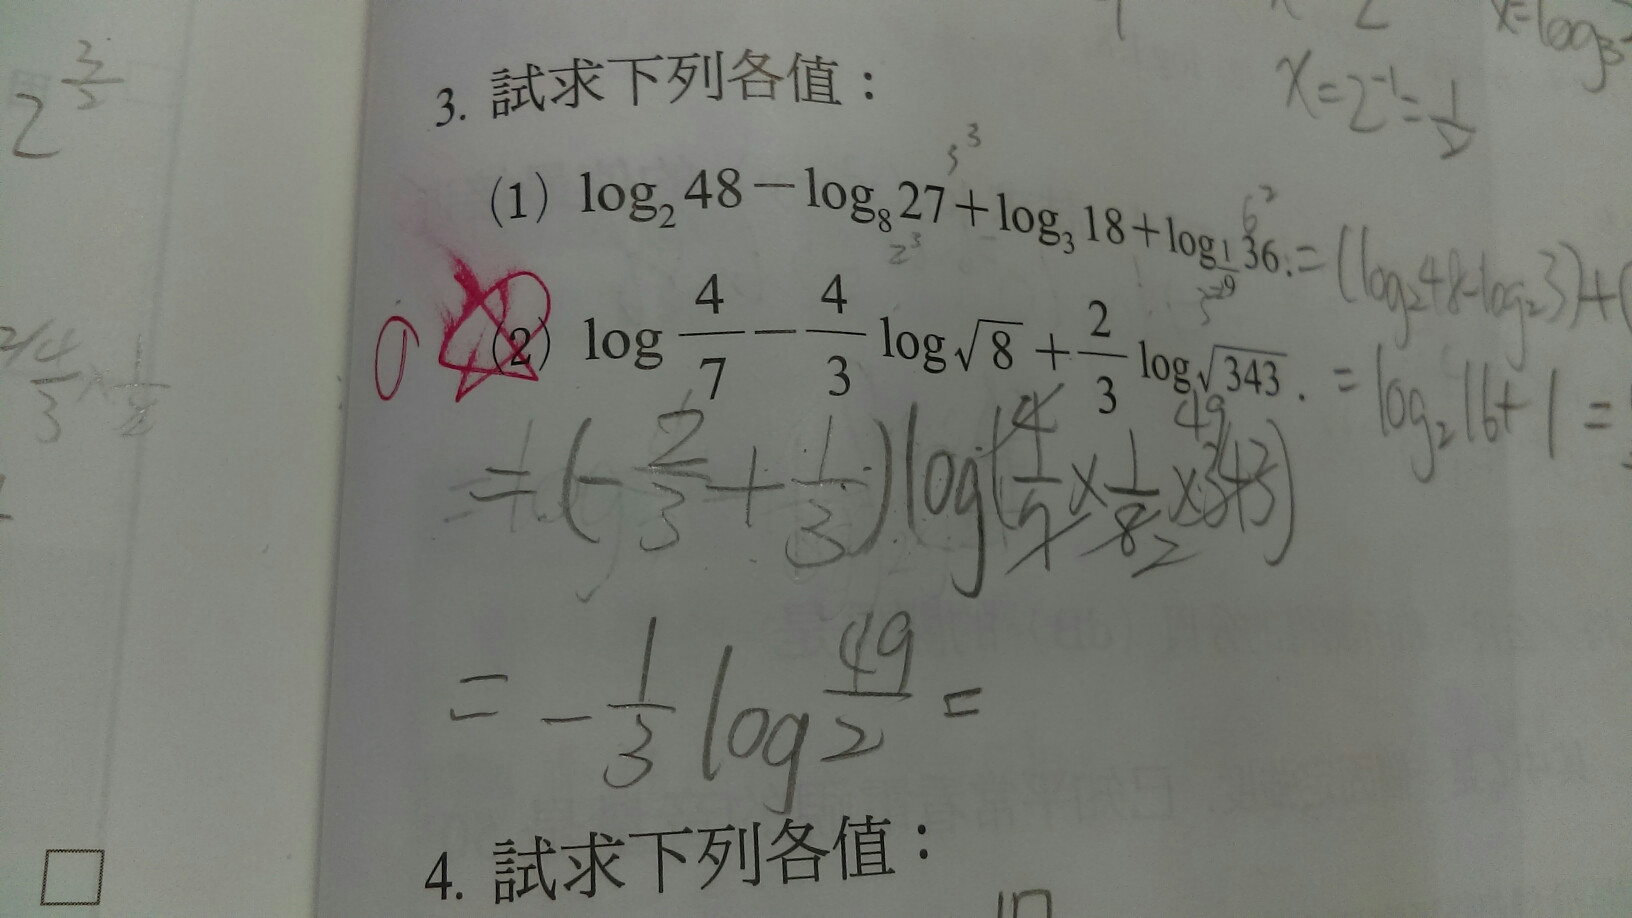 2^{3/2}
x=log₃
x=2⁻¹=1/2
3. 試求下列各值：
3³
6²
(1) log₂48－log₈27＋log₃18＋log_{1/9}36.=(log₂48-log₂3)+(
2³
(2) log 4/7 － 4/3 log√8 ＋ 2/3 log√343 . = log₂16+1=
4/3 × 1/2
=(-2/3+1/3)log(4/7×1/8×343)
49
2
=-1/3 log 49/2 =
4. 試求下列各值：